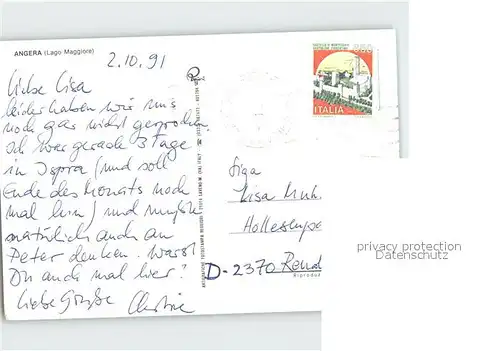 ANGERA (Lago Maggiore)
2.10.91
Liebe Lisa
leider haben wir uns
noch gar nicht gesprochen.
Ich war gerade 3 Tage
in Ispra (und soll
Ende des Monats noch
mal hin) und mußte
natürlich auch an
Peter denken. Warst
Du auch mal hier?
Liebe Grüße Christine
ITALIA
Siga
Lisa Muh.
D-2370 Rend
Riproduz
privacy protection
Datenschutz